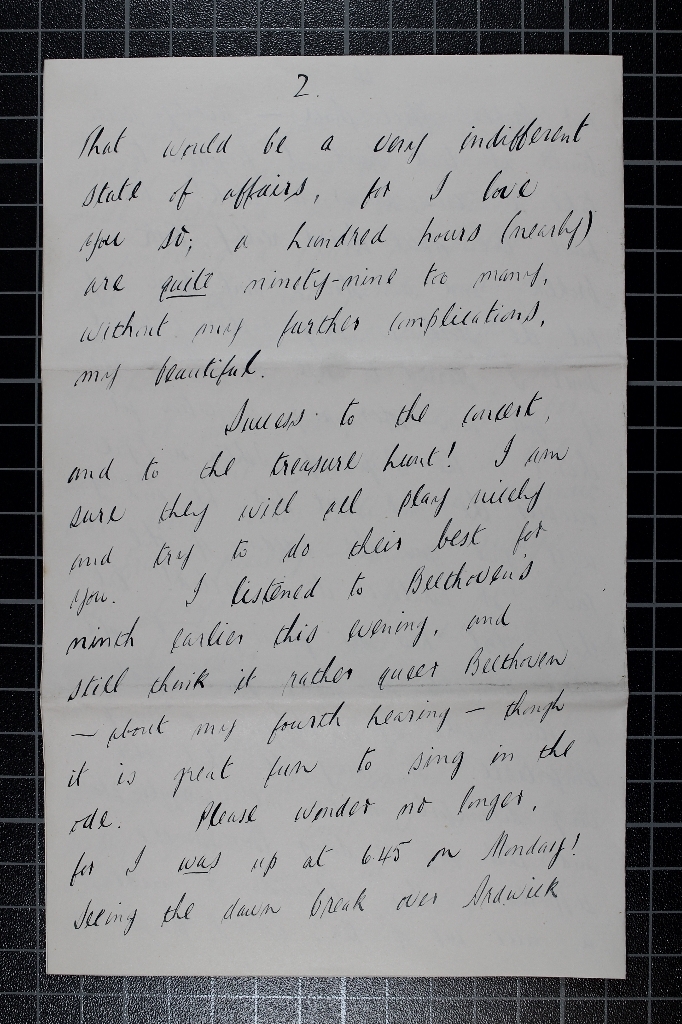 2.
That would be a very indifferent
state of affairs, for I love
you so; a hundred hours (nearly)
are quite ninety-nine too many,
without any further complications,
my beautiful.
Success to the concert,
and to the treasure hunt! I am
sure they will all play nicely
and try to do their best for
you. I listened to Beethoven's
ninth earlier this evening, and
still think it rather queer Beethoven
— about my fourth hearing — though
it is great fun to sing in the
ode. Please wonder no longer,
for I was up at 6.45 on Monday!
Seeing the dawn break over Ardwick